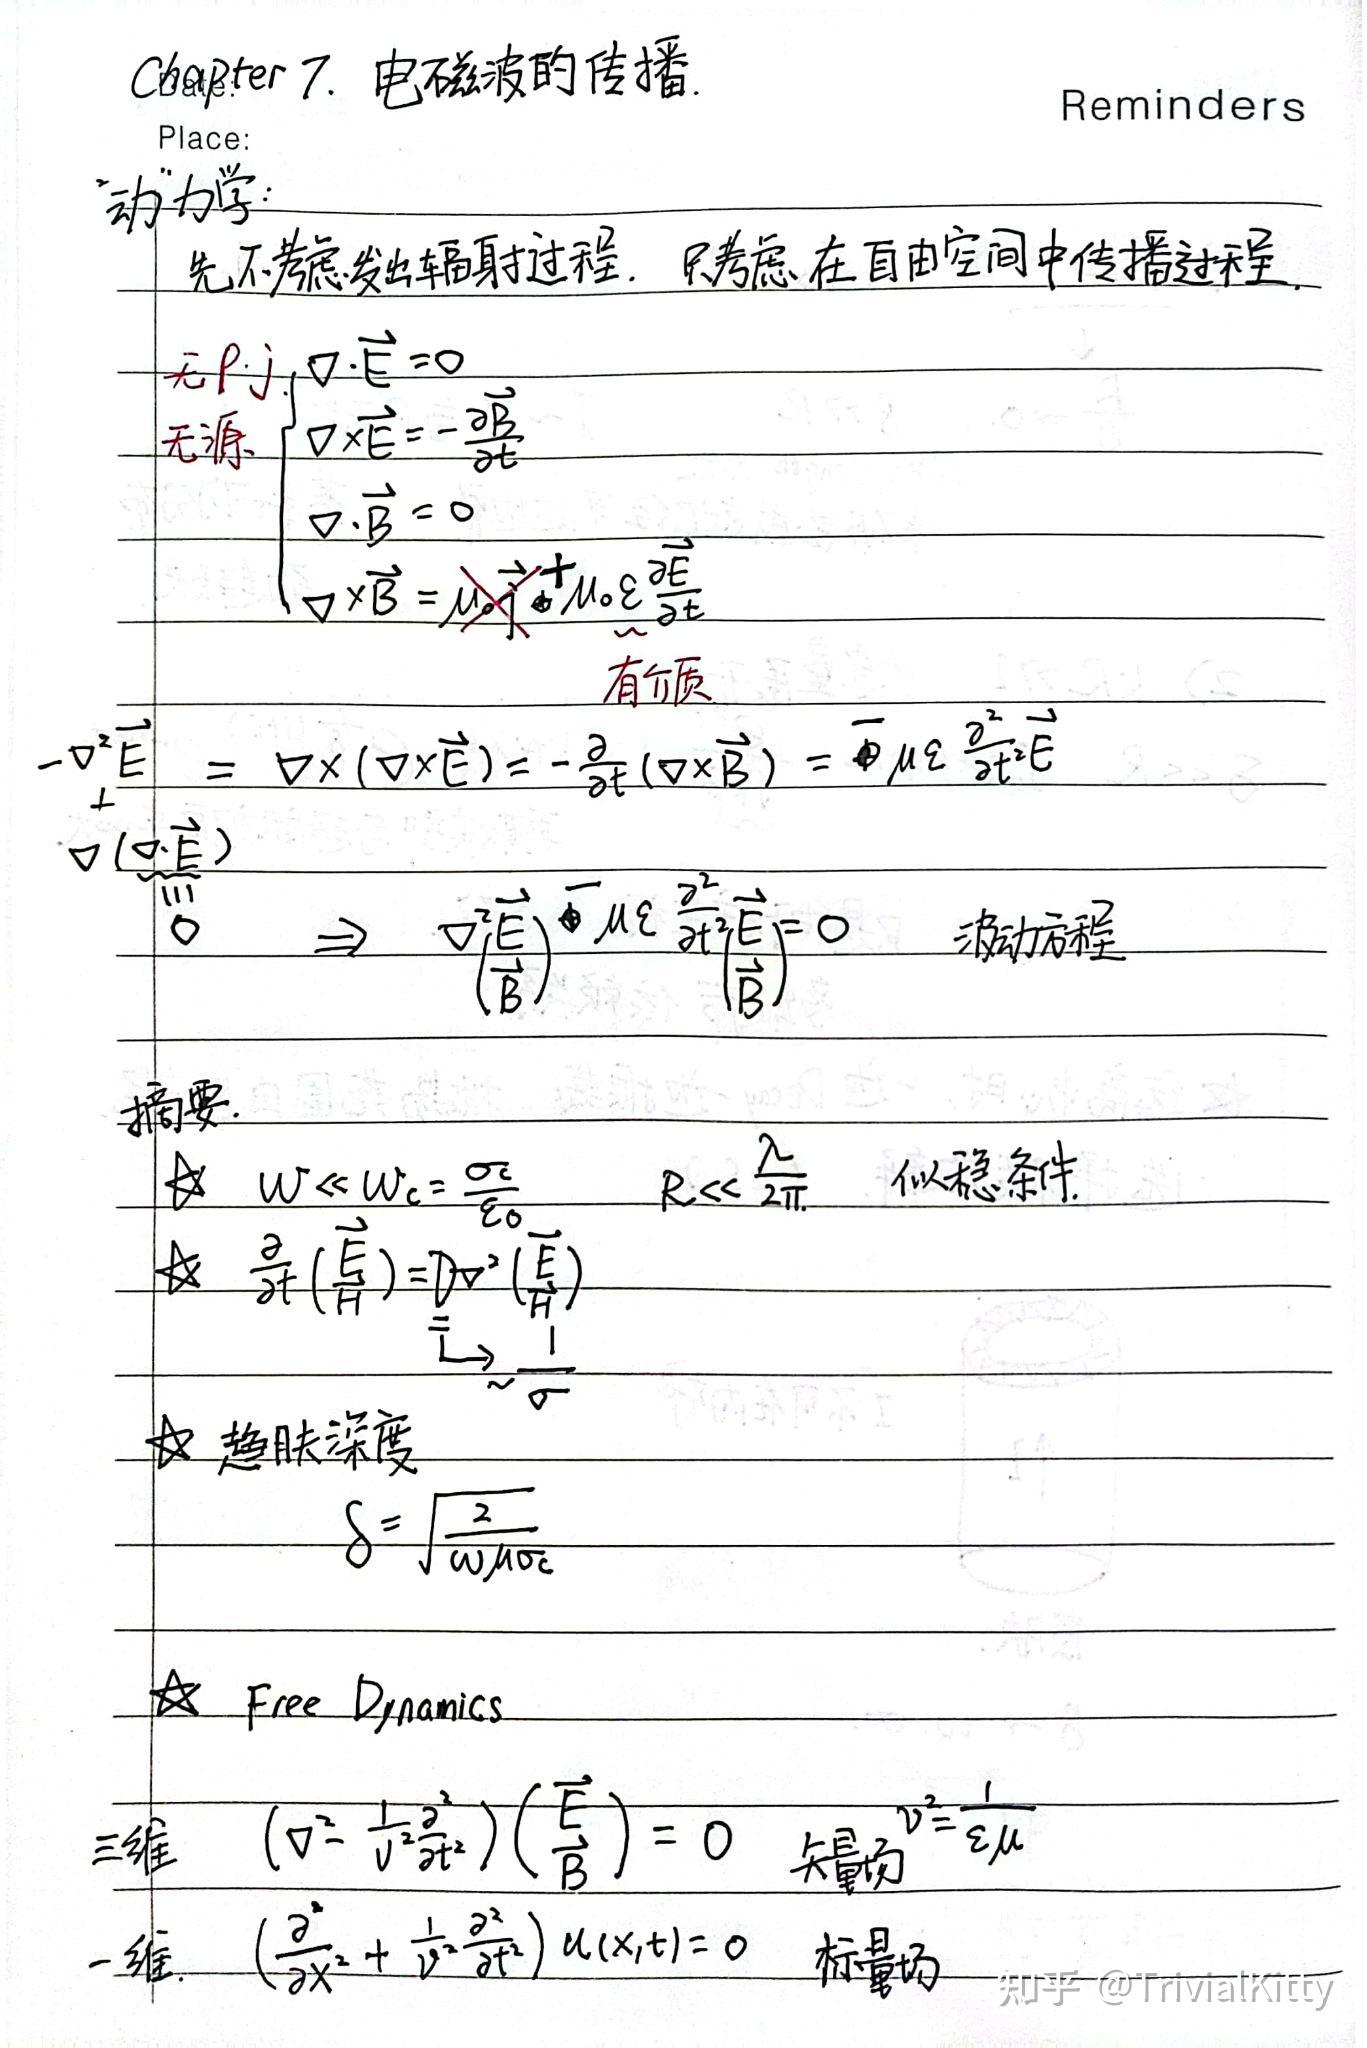 Chapter 7. 电磁波的传播.
Date:
Reminders
Place:
"动"力学:
先不考虑发出辐射过程. 只考虑在自由空间中传播过程.
无ρ.j. ∇·E⃗=0
无源. ∇×E⃗=-∂B⃗/∂t
∇·B⃗=0
∇×B⃗=μ₀j⃗+μ₀ε ∂E⃗/∂t
有介质
-∇²E⃗ = ∇×(∇×E⃗)=-∂/∂t(∇×B⃗) = -με ∂²/∂t² E⃗
+
∇(∇·E⃗)
0 ⇒ ∇²(E⃗ B⃗) - με ∂²/∂t² (E⃗ B⃗)=0 波动方程
摘要.
☆ w≪w_c=σ_c/ε₀ R≪λ/2π 似稳条件.
☆ ∂/∂t(E⃗ H⃗)=D∇²(E⃗ H⃗)
↳ ~1/σ
☆ 趋肤深度
δ=√(2/(ωμσ_c))
☆ Free Dynamics
三维 (∇²-1/v² ∂²/∂t²)(E⃗ B⃗)=0 矢量场 v²=1/εμ
一维. (∂²/∂x²+1/v² ∂²/∂t²)u(x,t)=0 标量场
知乎 @TrivialKitty